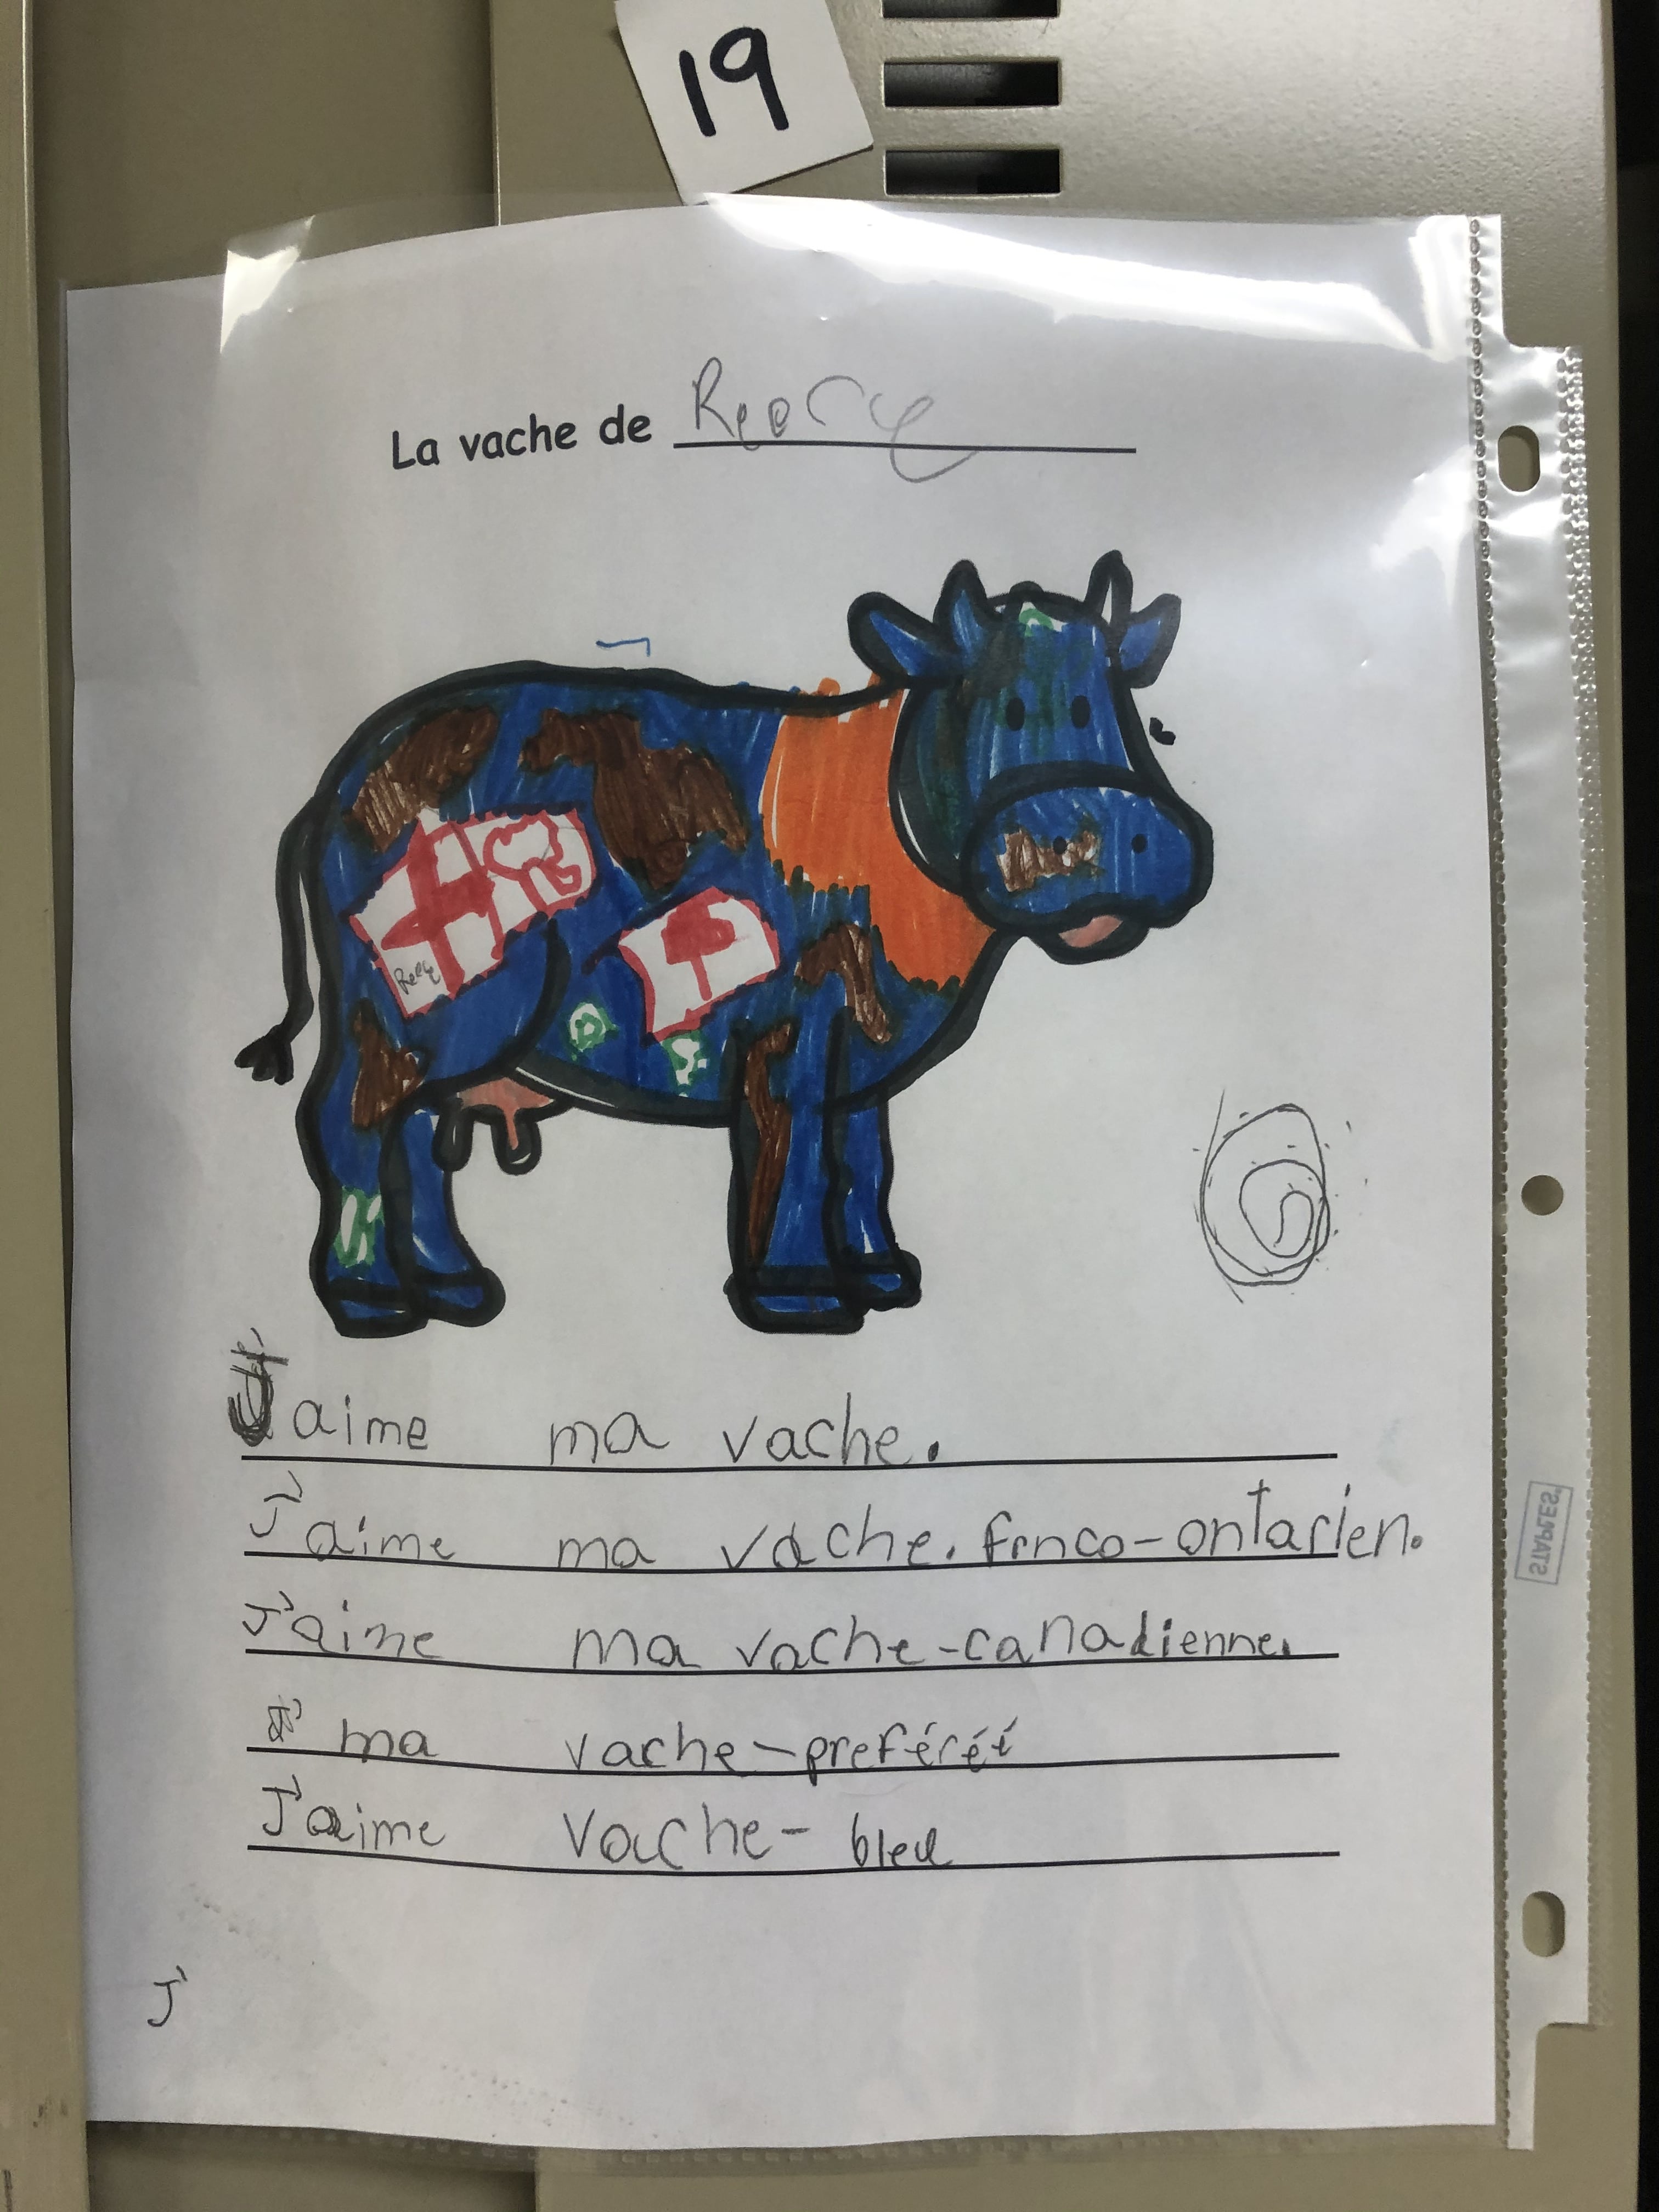 19
La vache de Reece
Reece
J'aime ma vache.
J'aime ma vache. frnco-ontarien.
J'aime ma vache-canadienne.
J' ma vache-preféréé
J'aime vache-bleu
J'
STAPLES